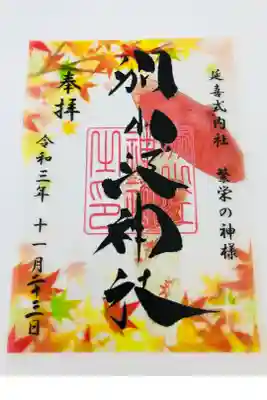 延喜式内社 繁栄の神様
別小江神社
奉拝
令和三年 十一月二十三日